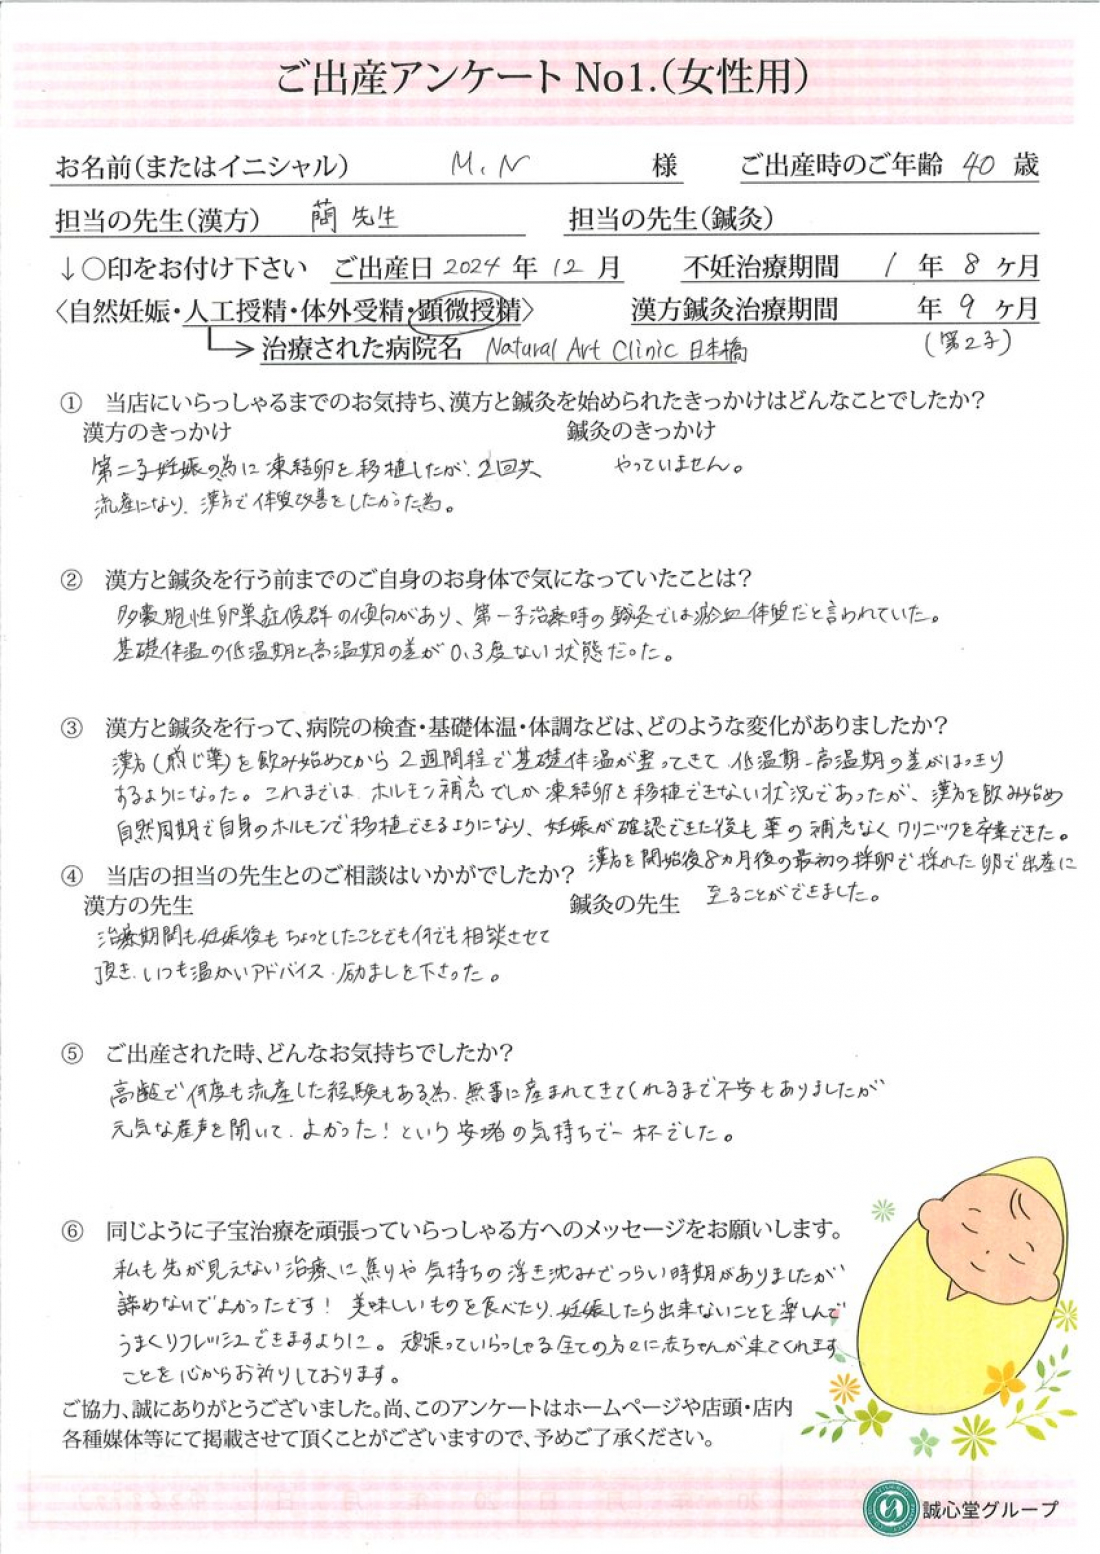 ご出産アンケート No1.(女性用)
お名前(またはイニシャル) M.N 様 ご出産時のご年齢 40 歳
担当の先生(漢方) 蘭先生 担当の先生(鍼灸)
↓○印をお付け下さい ご出産日 2024 年 12 月 不妊治療期間 1 年 8 ヶ月
〈自然妊娠・人工授精・体外受精・顕微授精〉 漢方鍼灸治療期間 年 9 ヶ月
(第2子)
治療された病院名 Natural Art Clinic 日本橋
① 当店にいらっしゃるまでのお気持ち、漢方と鍼灸を始められたきっかけはどんなことでしたか?
漢方のきっかけ
第二子妊娠の為に凍結卵を移植したが、2回共
流産になり、漢方で体質改善をしたかった為。
鍼灸のきっかけ
やっていません。
② 漢方と鍼灸を行う前までのご自身のお身体で気になっていたことは?
多嚢胞性卵巣症候群の傾向があり、第一子治療時の鍼灸では瘀血体質だと言われていた。
基礎体温の低温期と高温期の差が0.3度ない状態だった。
③ 漢方と鍼灸を行って、病院の検査・基礎体温・体調などは、どのような変化がありましたか?
漢方(煎じ薬)を飲み始めてから2週間程で基礎体温が整ってきて、低温期-高温期の差がはっきり
するようになった。これまでは、ホルモン補充でしか凍結卵を移植できない状況であったが、漢方を飲み始め
自然周期で自身のホルモンで移植できるようになり、妊娠が確認できた後も薬の補充なくクリニックを卒業できた。
漢方を開始後8ヵ月後の最初の採卵で採れた卵で出産に
至ることができました。
④ 当店の担当の先生とのご相談はいかがでしたか?
漢方の先生
治療期間も妊娠後もちょっとしたことでも何でも相談させて
頂き、いつも温かいアドバイス、励ましを下さった。
鍼灸の先生
⑤ ご出産された時、どんなお気持ちでしたか?
高齢で何度も流産した経験もある為、無事に産まれてきてくれるまで不安もありましたが
元気な産声を聞いて、よかった!という安堵の気持ちで一杯でした。
⑥ 同じように子宝治療を頑張っていらっしゃる方へのメッセージをお願いします。
私も先が見えない治療に焦りや気持ちの浮き沈みでつらい時期がありましたが
諦めないでよかったです! 美味しいものを食べたり、妊娠したら出来ないことを楽しんで
うまくリフレッシュできますように。頑張っていらっしゃる全ての方々に赤ちゃんが来てくれます
ことを心からお祈りしております。
ご協力、誠にありがとうございました。尚、このアンケートはホームページや店頭・店内
各種媒体等にて掲載させて頂くことがございますので、予めご了承ください。
誠心堂グループ